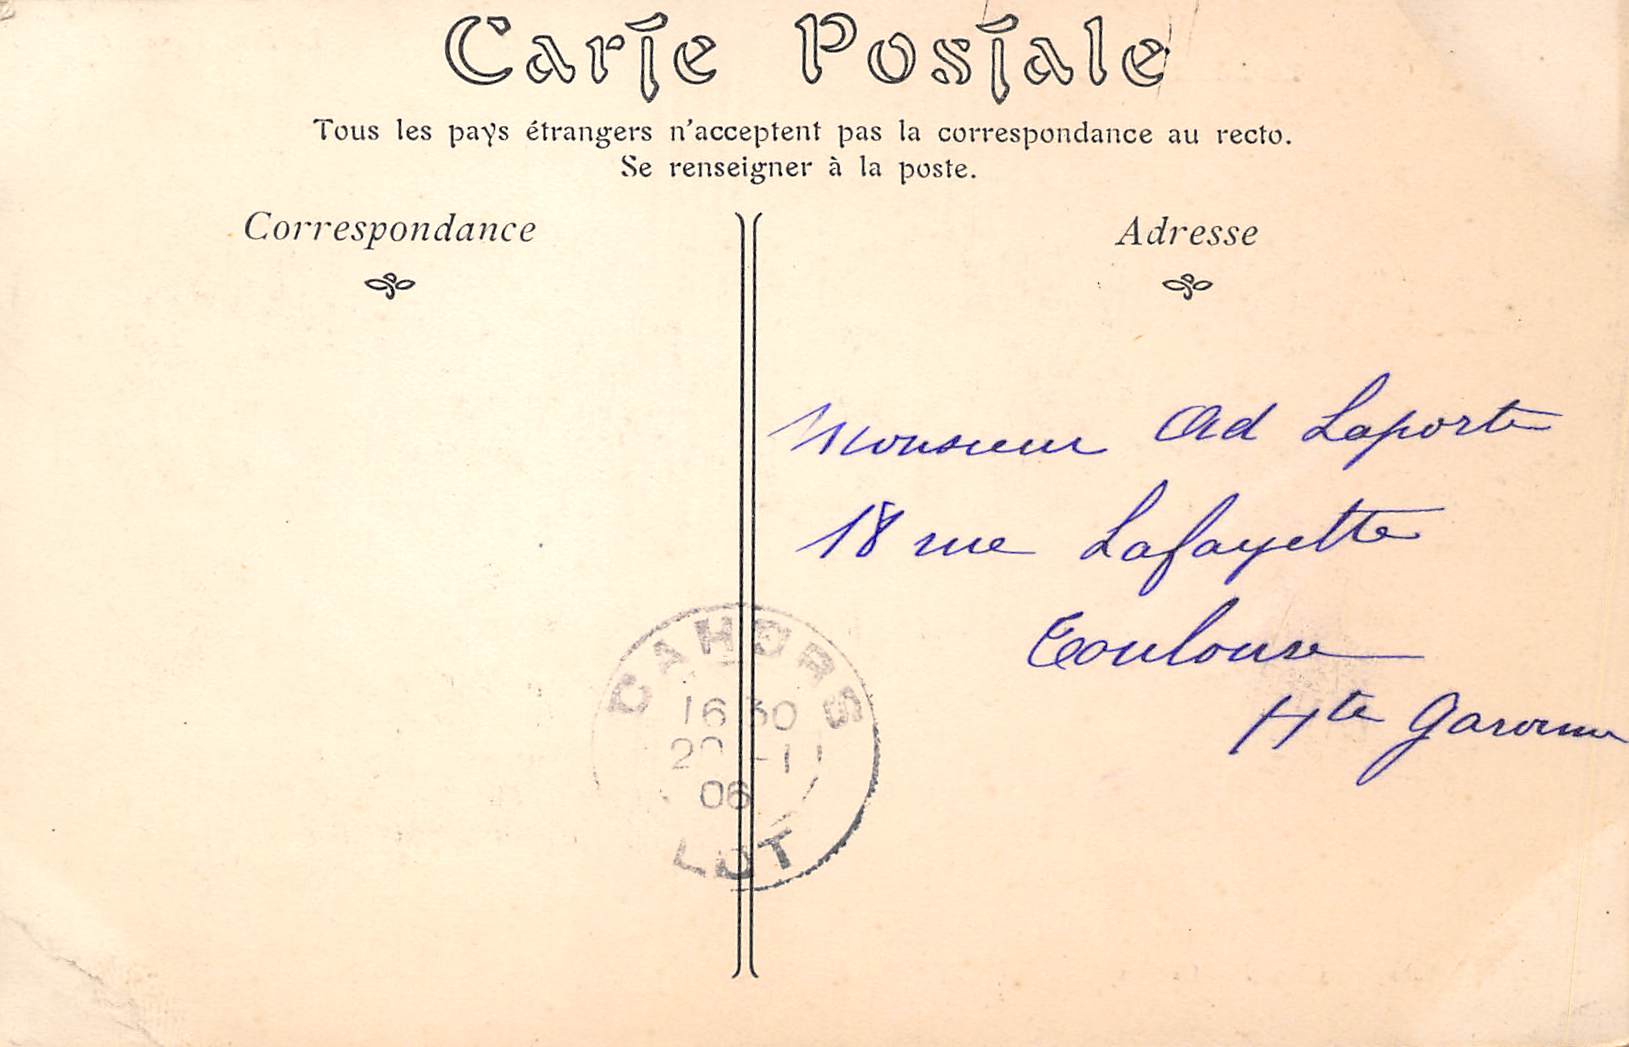 Carte Postale
Tous les pays étrangers n'acceptent pas la correspondance au recto.
Se renseigner à la poste.
Correspondance
Adresse
Monsieur Ad Laporte
18 rue Lafayette
Toulouse
Hte Garonne
CAHORS
16 30
-11
06
LOT